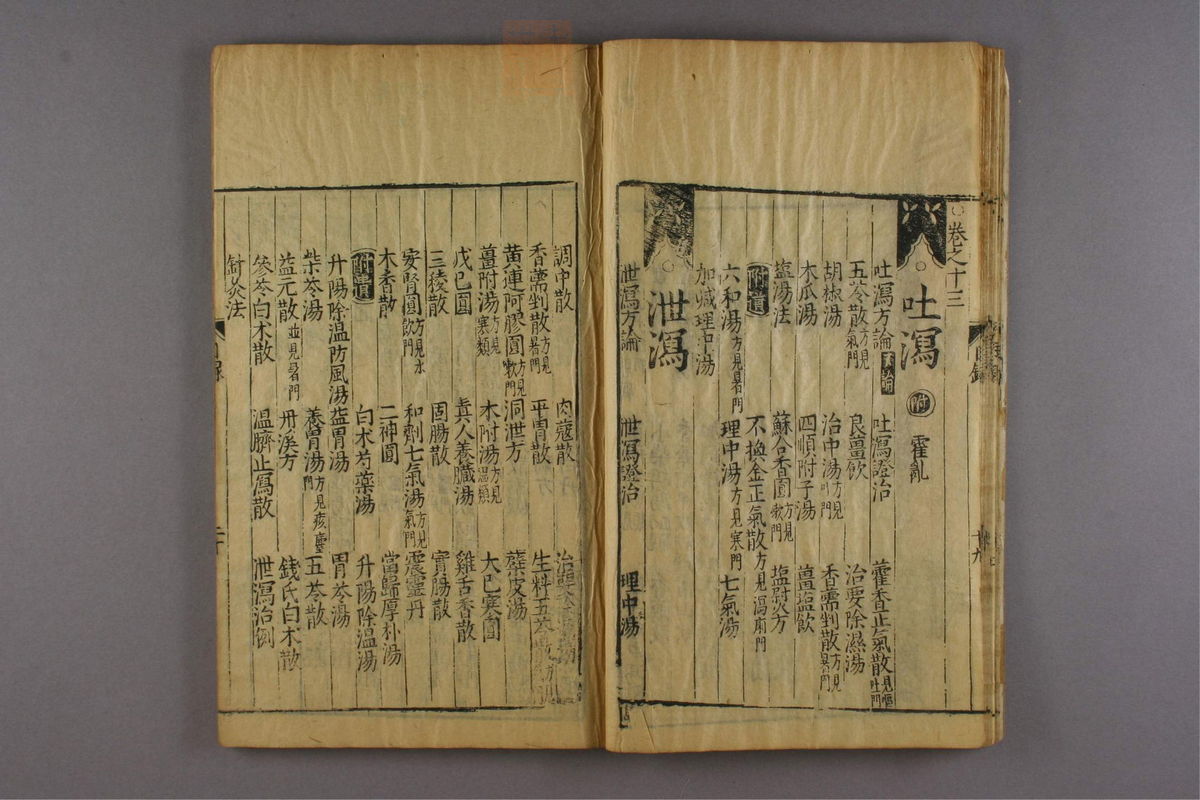 ○卷之十三
吐瀉 附 霍亂
吐瀉方論 吐瀉證治 藿香正氣散見嘔吐門
五苓散方見氣門 良薑飲 治要除濕湯
胡椒湯 治中湯 香薷剉散方見暑門
木瓜湯 四順附子湯 薑塩飲
塩湯法 蘇合香圓方見嗽門 塩熨方
附遺 不換金正氣散方見瀉痢門
六和湯方見暑門 理中湯方見寒門 七氣湯
加減理中湯
泄瀉
泄瀉方論 泄瀉證治 理中湯
調中散 肉蔻散
香薷剉散方見暑門 平胃散 生料五苓散
黃連阿膠圓方見嗽門 洞泄方 蘗皮湯
薑附湯方見寒類 木附湯方見濕類 大已寒圓
戊巳圓 真人養臟湯 雞舌香散
三稜散 固腸散 實腸散
安腎圓方見水飲門 和劑七氣湯方見氣門 震靈丹
木香散 二神圓 當歸厚朴湯
附遺 白木芍藥湯 升陽除温湯
升陽除温防風湯 益胃湯 胃苓湯
柴苓湯 養胃湯方見痎瘧門 五苓散
益元散並見暑門 丹溪方 錢氏白木散
參苓白木散 温臍止瀉散 泄瀉治例
針灸法